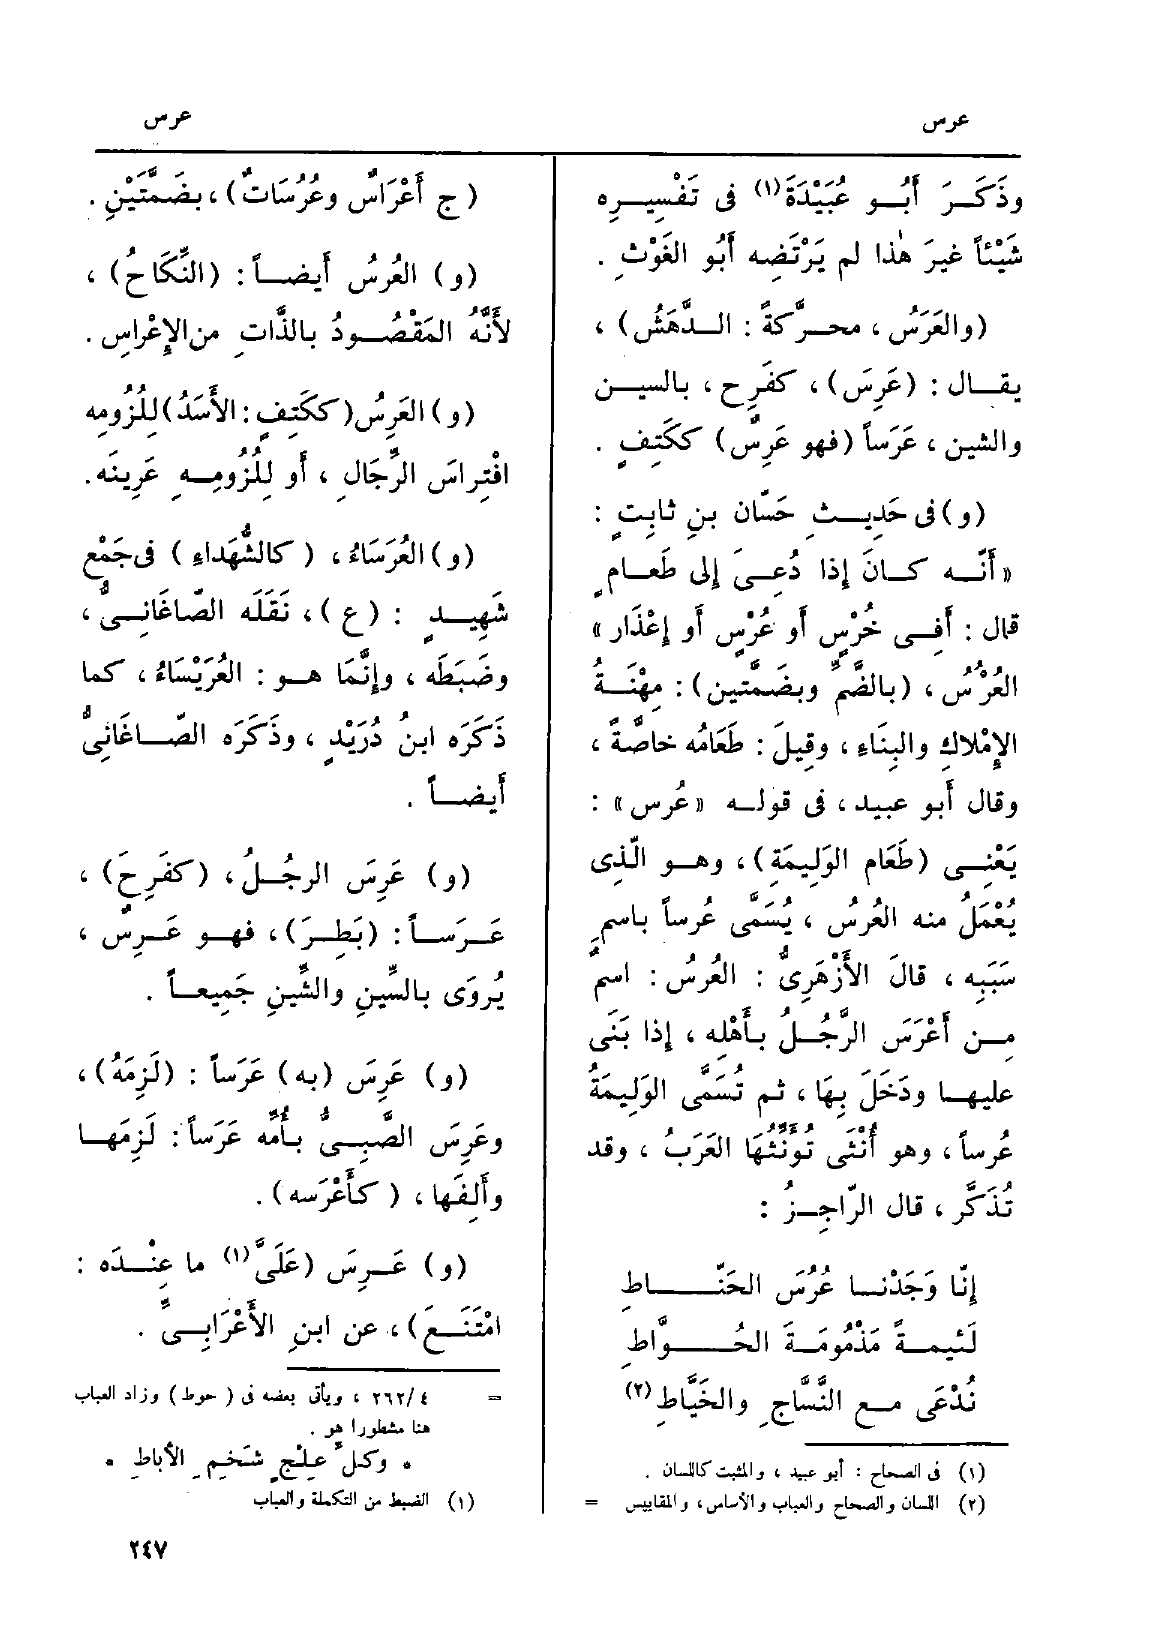 عرس
عرس
وذَكَرَ أَبُو عُبَيْدَةَ (١) فى تَفْسِيرِه
شَيْئاً غيرَ هٰذا لم يَرْتَضِه أَبُو الغَوْثِ .
(والعَرَسُ ، محرَّكةً : الدَّهَشُ) ،
يقال : (عَرِسَ) ، كفَرِح ، بالسين
والشين ، عَرَساً (فهو عَرِسٌ) ككَتِفٍ .
(و) فى حَدِيثِ حَسّان بنِ ثابِتٍ :
« أَنَّه كانَ إذا دُعِىَ إلى طَعامٍ
قال : أَفِى خُرْسٍ أَو عُرْسٍ أَو إِعْذَار »
العُرْسُ ، (بالضَّمِّ وبضَمَّتين) : مِهْنَةُ
الإِمْلاكِ والبِنَاءِ ، وقِيلَ : طَعَامُه خاصَّةً ،
وقال أَبو عبيد ، فى قوله « عُرس » :
يَعْنِى (طَعَام الوَلِيمَةِ) ، وهو الَّذِى
يُعْمَلُ منه العُرسُ ، يُسَمَّى عُرساً باسمِ
سَبَبِه ، قالَ الأَزْهَرِىُّ : العُرسُ : اسمٌ
مِن أَعْرَسَ الرَّجُلُ بأَهْلِه ، إذا بَنَى
عليها ودَخَلَ بِهَا ، ثم تُسَمَّى الوَلِيمَةُ
عُرساً ، وهو أُنْثَى تُؤنِّثُهَا العَرَبُ ، وقد
تُذَكَّر ، قال الرّاجِزُ :
إنّا وَجَدْنا عُرُسَ الحَنّاطِ
لَئيمةً مَذْمُومَةَ الحُوَّاطِ
نُدْعَى مع النَّسَّاجِ والخَيَّاطِ (٢)
(١) فى الصحاح : أبو عبيد ، والمثبت كاللسان .
(٢) اللسان والصحاح والعباب والأساس ، والمقاييس =
(ج أَعْرَاسٌ وعُرُسَاتٌ) ، بضَمَّتَيْنِ .
(و) العُرسُ أَيضاً : (النِّكَاحُ) ،
لأَنَّه المَقْصُودُ بالذَّاتِ من الإِعْراسِ .
(و) العَرِسُ (ككَتِفٍ : الأَسَدُ) لِلُزُومِه
افْتِراسَ الرِّجَالِ ، أَو لِلُزُومِهِ عَرِينَه .
(و) العُرَسَاءُ ، (كالشُّهَداءِ) فى جَمْع
شَهِيدٍ : (ع) ، نَقَلَه الصّاغَانِىُّ ،
وضَبَطَه ، وإنَّمَا هو : العُرَيْسَاءُ ، كما
ذَكَرَه ابنُ دُرَيْدٍ ، وذَكَرَه الصّاغَانِىُّ
أَيضاً .
(و) عَرِسَ الرجُلُ ، (كفَرِحَ) ،
عَرَساً : (بَطِرَ) ، فهو عَرِسٌ ،
يُروَى بالسِّينِ والشِّينِ جَمِيعاً .
(و) عَرِسَ (به) عَرَساً : (لَزِمَهُ) ،
وعَرِسَ الصَّبِىُّ بأُمِّه عَرَساً : لَزِمَها
وأَلِفَها ، (كأَعْرَسه) .
(و) عَرِسَ (عَلَىَّ (١) ما عِنْدَه :
امْتَنَعَ) ، عن ابنِ الأَعْرَابِىِّ .
= ٤/٢٦٢ ، ويأتى بعضه فى (حوط) وزاد العباب
هنا مشطورا هو .
* وكلُّ عِلْجٍ شَخِمِ الأباطِ *
(١) الضبط من التكملة والعباب
٢٤٧